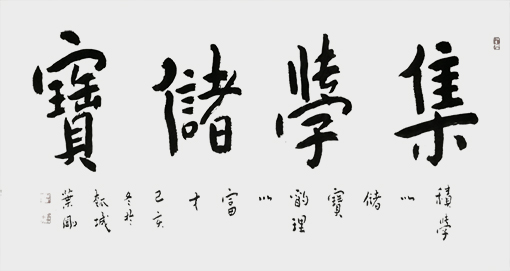 集學儲寶
積學以儲寶酌理以富才己亥冬於瓢城葉剛